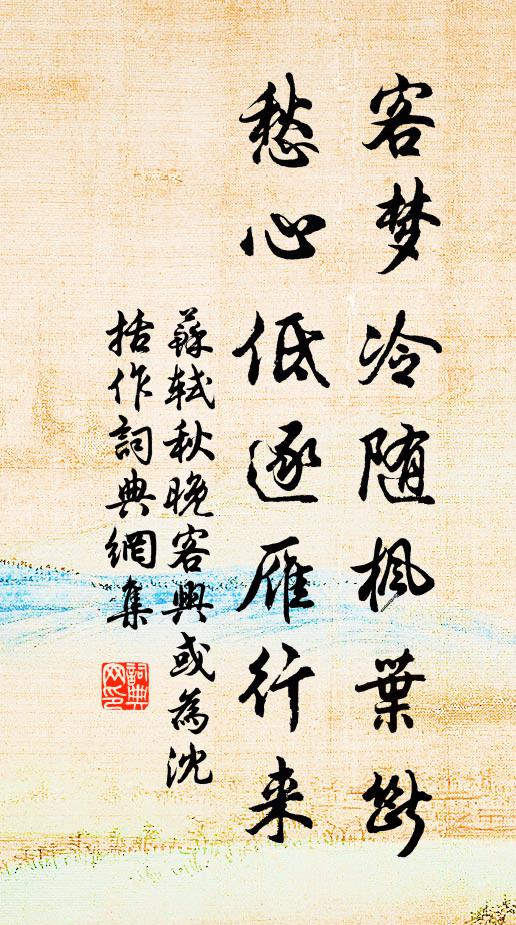 客梦冷随枫葉斷
愁心低逐雁行来
蘇軾秋晚客興或為沈
括作詞典網集
詞典網印